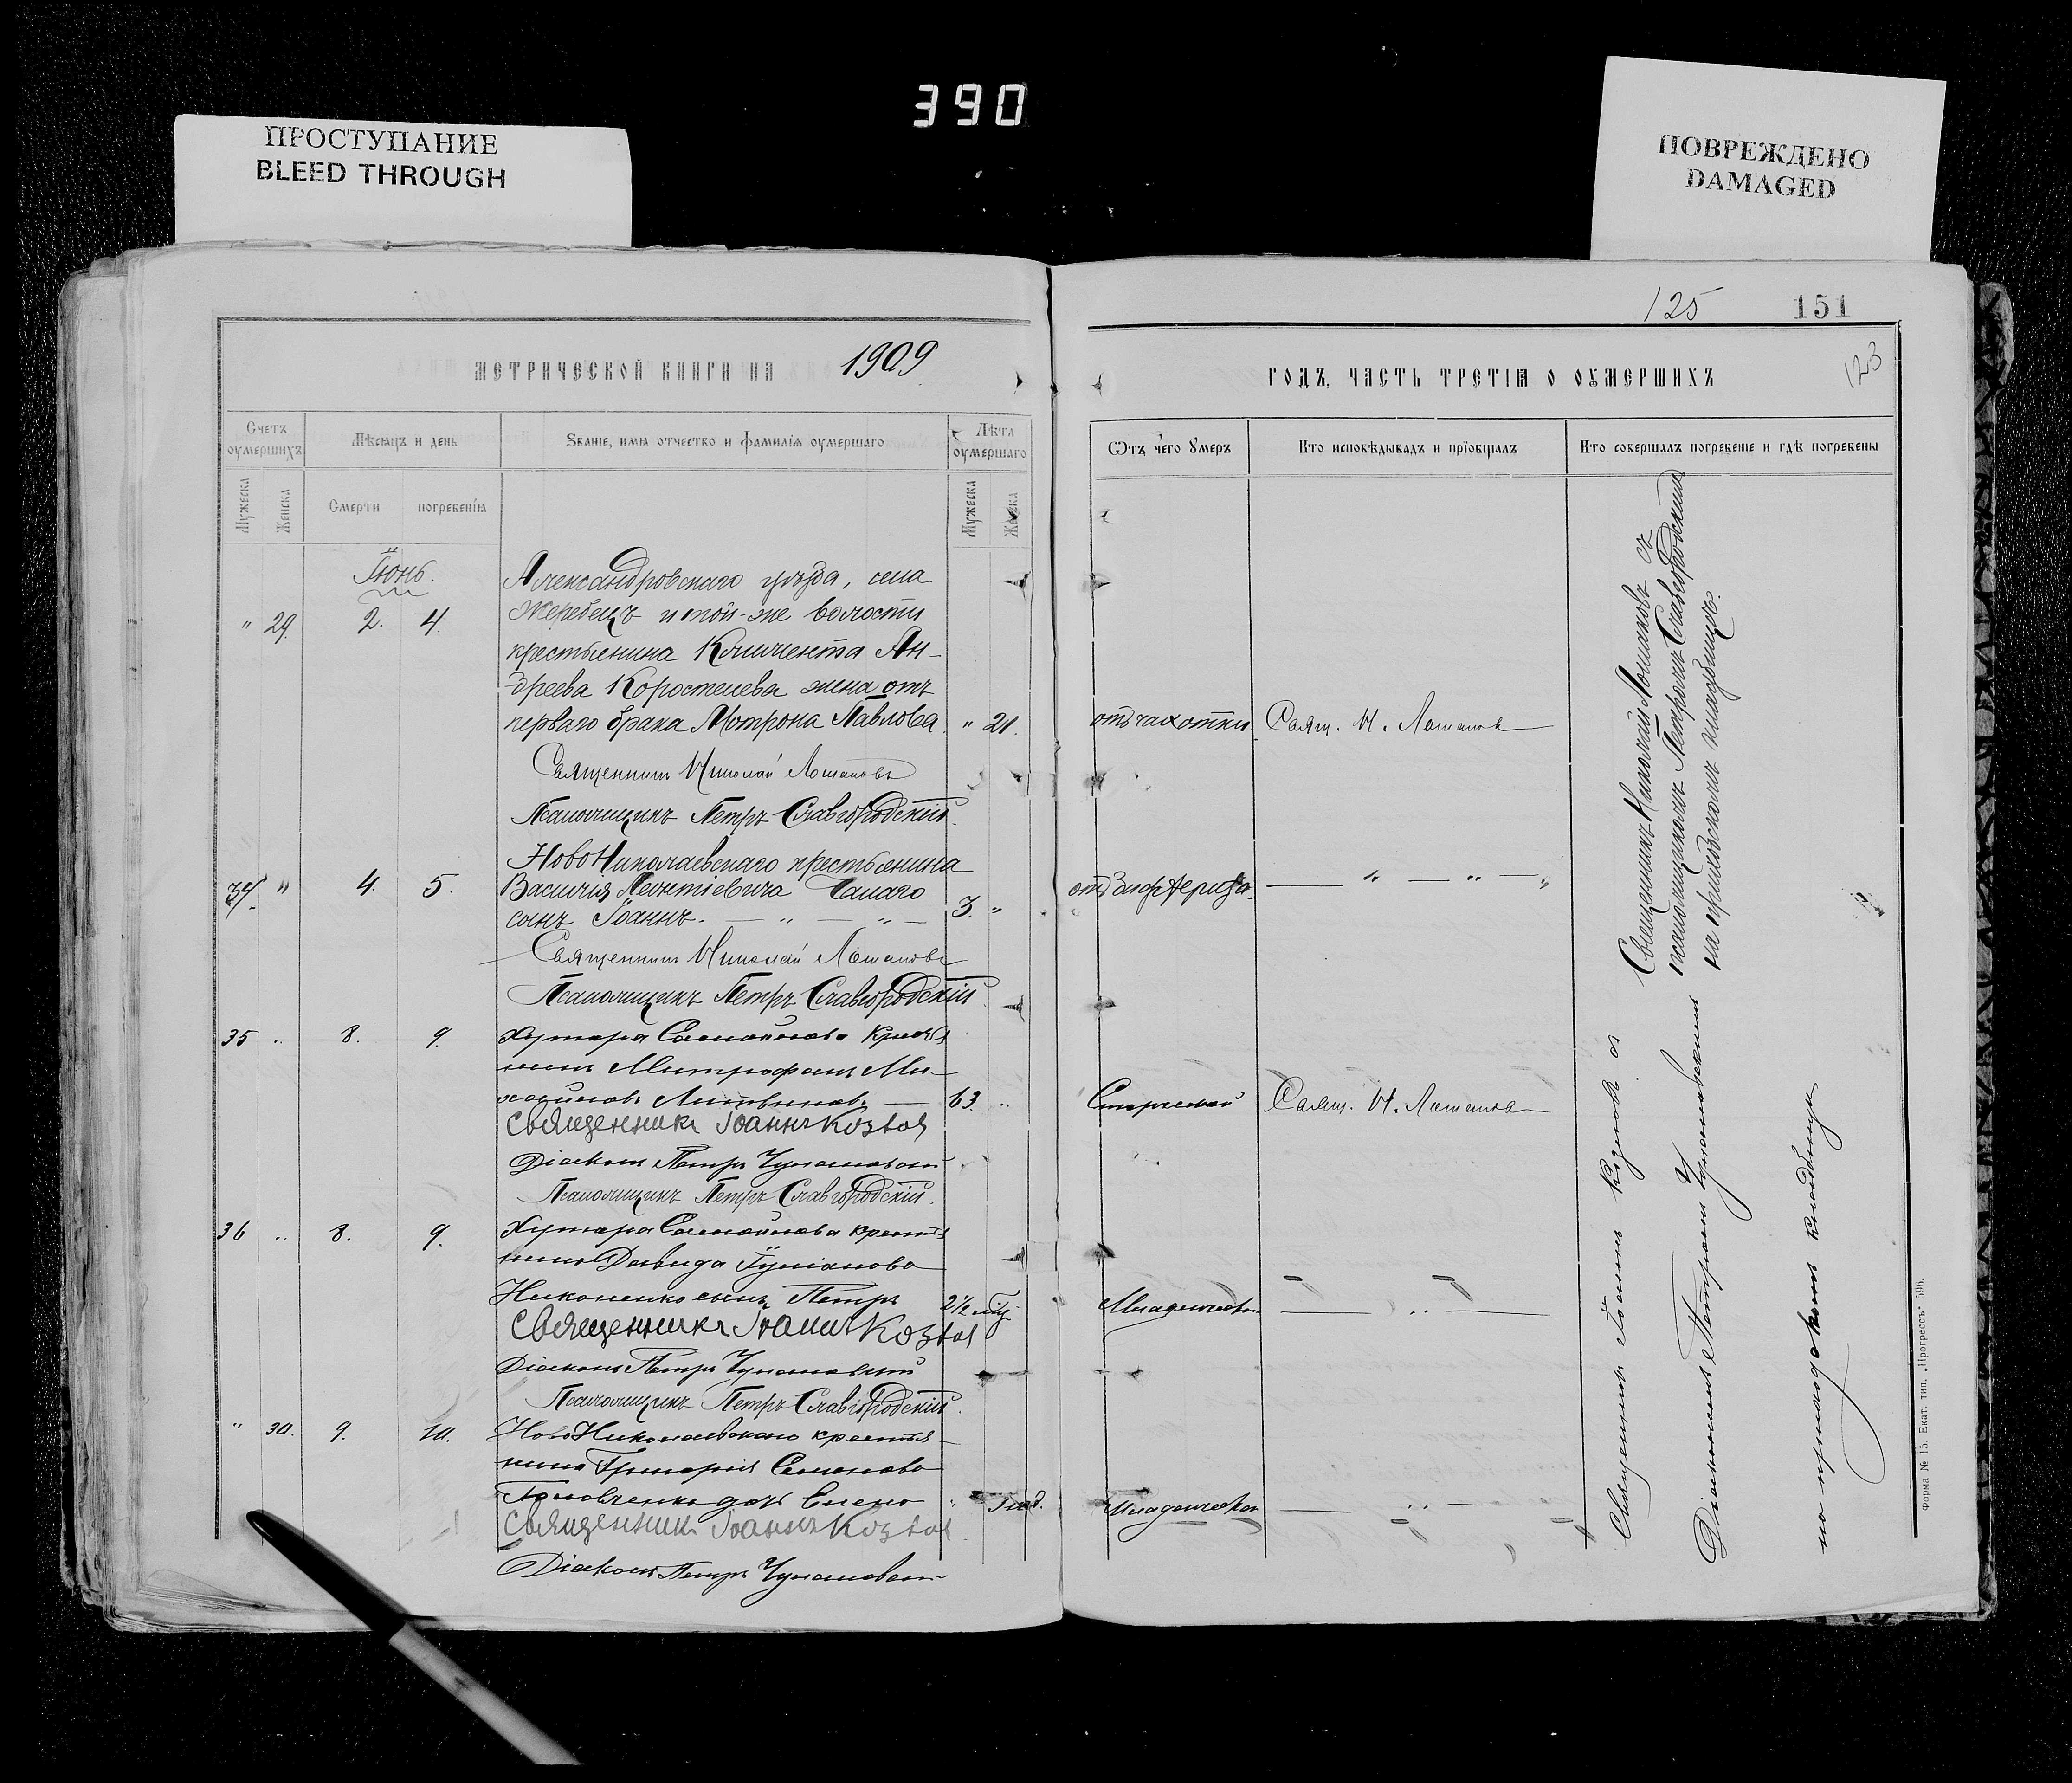 390
ПРОСТУПАНИЕ
BLEED THROUGH
ПОВРЕЖДЕНО
DAMAGED
125
151
123
МЕТРИЧЕСКОЙ КНИГИ НА 1909
ГОДЪ, ЧАСТЬ ТРЕТІЯ О ОУМЕРШИХЪ
Счетъ оумершихъ
Мѣсяцъ и день
Званіе, имя отчество и фамилія оумершаго
Лѣта оумершаго
Ѿтъ чего Умеръ
Кто исповѣдывалъ и пріобщалъ
Кто совершалъ погребеніе и гдѣ погребены
Мужеска
Женска
Смерти
погребенія
Мужеска
Женска
Іюнь.
Александровскаго уѣзда, села
" 29. 2. 4. Жеребецъ и той-же волости
крестьянина Климента Ан-
дреева Коростелева жена отъ
перваго брака Мотрона Павлова. " 21. отъ чахотки. Свящ. Н. Лошаковъ
Священникъ Николай Лошаковъ
Псаломщикъ Петръ Славгородскій.
НовоНиколаевскаго крестьянина
34. " 4. 5. Василія Леонтіевича отъ дифтерита. — " — " — "
сынъ Іоаннъ. — " — " — 3. "
Священникъ Николай Лошаковъ
Псаломщикъ Петръ Славгородскій.
35 " 8. 9. Хутора Самойлова кресть
янинъ Митрофанъ Ми-
хайловъ Литвиновъ — 63. " Старостью Свящ. Н. Лошаковъ
Священникъ Іоаннъ Козловъ
Діаконъ Петръ
Псаломщикъ Петръ Славгородскій.
36 " 8. 9. Хутора Самойлова крестья
нина Давида
Никоненко сынъ Петръ 2½ мѣс. Младенческой — " —
Священникъ Іоаннъ Козловъ
Діаконъ Петръ
Псаломщикъ Петръ Славгородскій.
" 30. 9. 10. НовоНиколаевскаго крестья-
нина Григорія Семенова
дочь Елена " 1 год. Младенческой — " —
Священникъ Іоаннъ Козловъ
Діаконъ Петръ
Священникъ Николай Лошаковъ съ
псаломщикомъ Петромъ Славгородскимъ
на приходскомъ кладбищѣ.
Священникъ Іоаннъ Козловъ съ
Діакономъ Петромъ
на приходскомъ кладбищѣ
Форма № 15. Екат. тип. „Прогрессъ" 596.